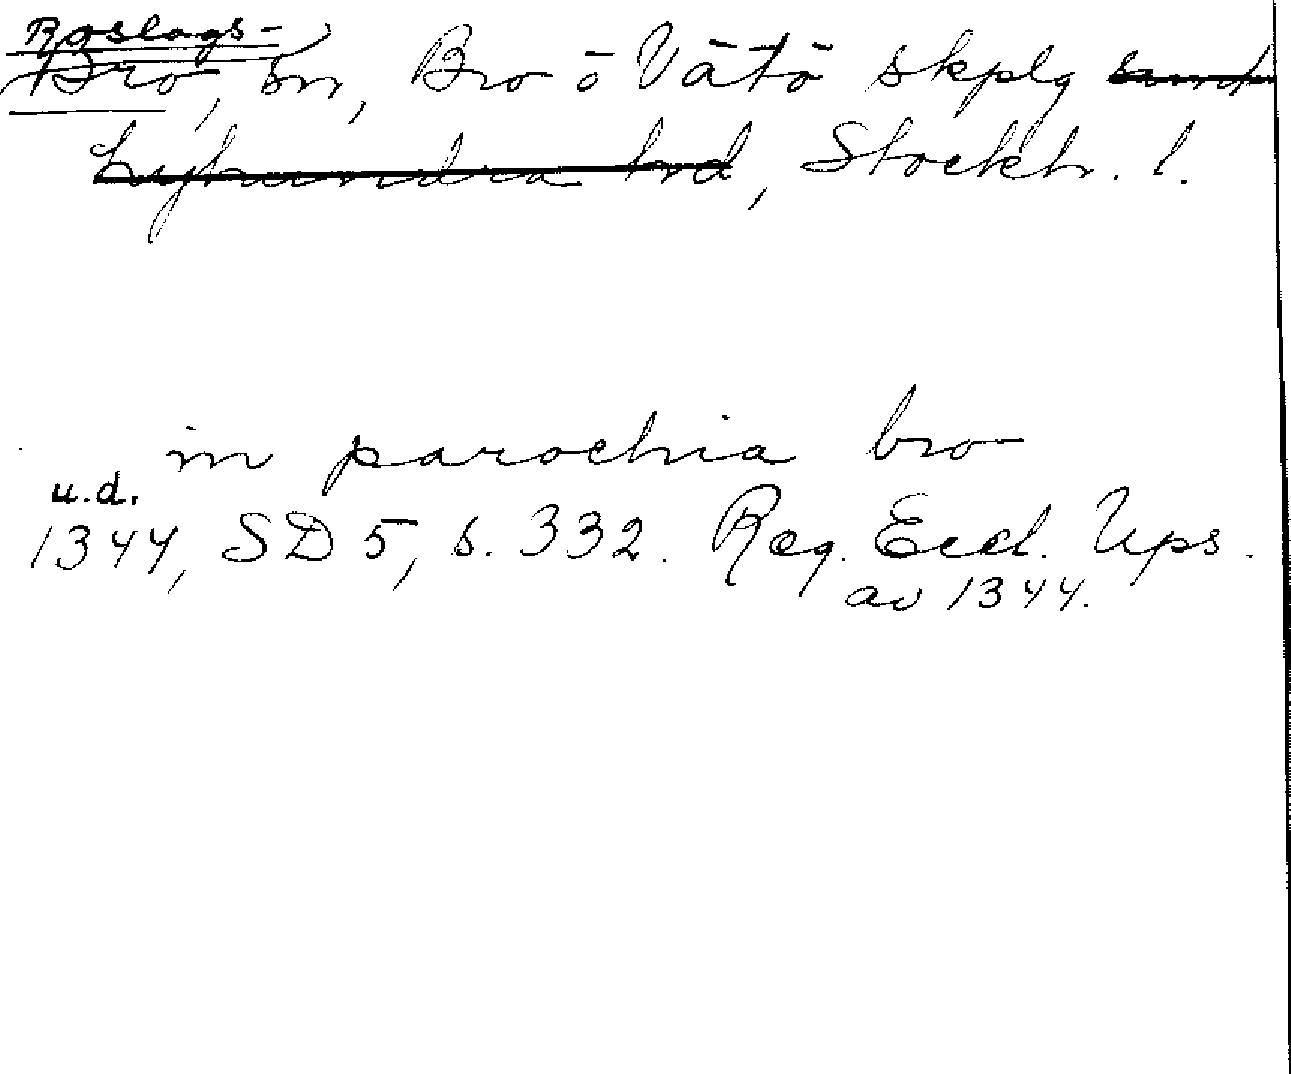 Roslags-
Bro, sn, Bro o Vätö skplg samt
Lyhundra hd, Stockh. l.
in parochia bro
u.d.
1344, SD 5, s. 332. Reg. Eccl. Ups.
av 1344.